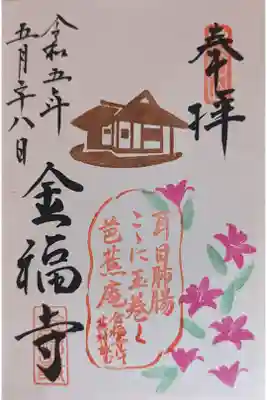 奉拝
耳目肺腸
こゝに玉巻く
芭蕉庵
金福寺
令和五年
五月二十八日